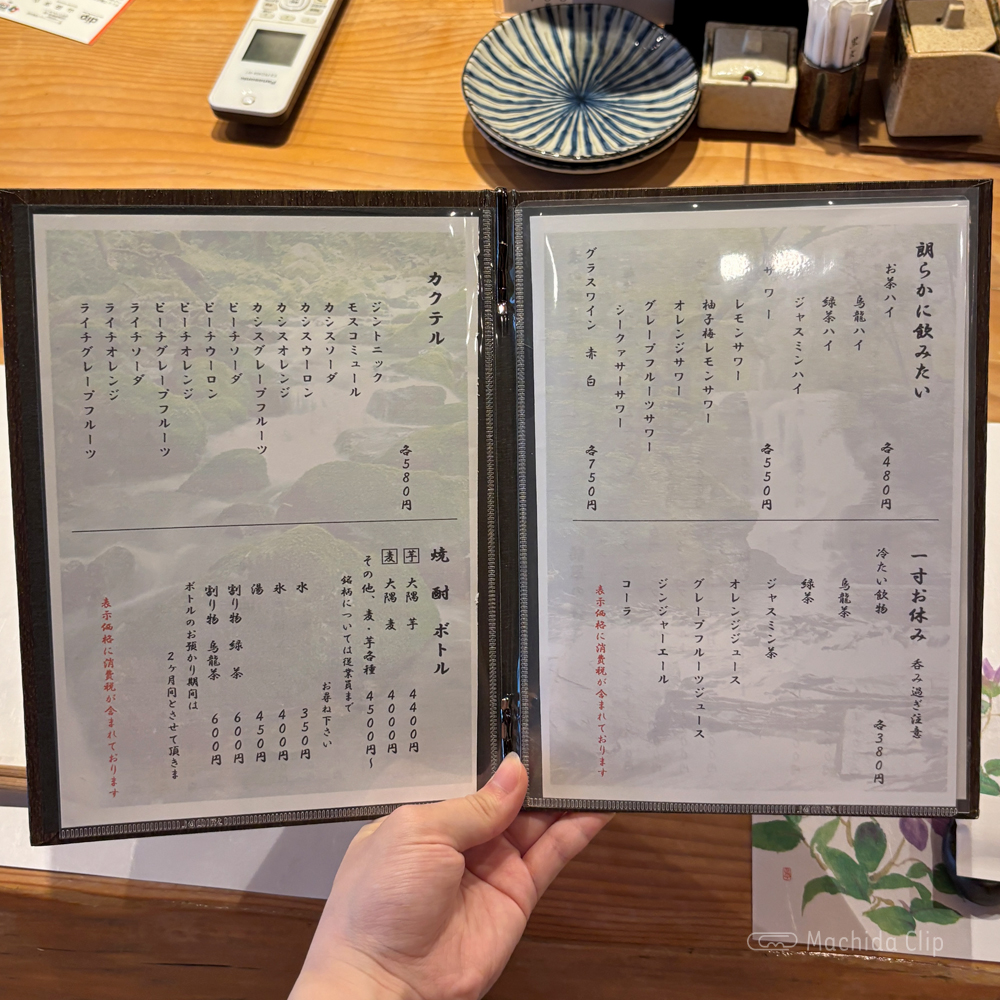 朗らかに飲みたい
お茶ハイ 各480円
烏龍ハイ
緑茶ハイ
ジャスミンハイ
サワー 各550円
レモンサワー
柚子梅レモンサワー
オレンジサワー
グレープフルーツサワー
シークァサーサワー
グラスワイン 赤 白 各750円
一寸お休み 呑み過ぎ注意
冷たい飲物 各380円
烏龍茶
緑茶
ジャスミン茶
オレンジジュース
グレープフルーツジュース
ジンジャーエール
コーラ
表示価格に消費税が含まれております
カクテル
各580円
ジントニック
モスコミュール
カシスソーダ
カシスウーロン
カシスオレンジ
カシスグレープフルーツ
ピーチソーダ
ピーチウーロン
ピーチオレンジ
ピーチグレープフルーツ
ライチソーダ
ライチオレンジ
ライチグレープフルーツ
焼酎ボトル
芋 大隅 芋 4400円
麦 大隅 麦 4000円
その他、麦・芋各種 4500円〜
銘柄については従業員まで
お尋ね下さい
水 350円
氷 400円
湯 450円
割り物 緑茶 600円
割り物 烏龍茶 600円
ボトルのお預かり期間は
2ヶ月間とさせて頂きま
表示価格に消費税が含まれております
Panasonic
clip
Machida Clip